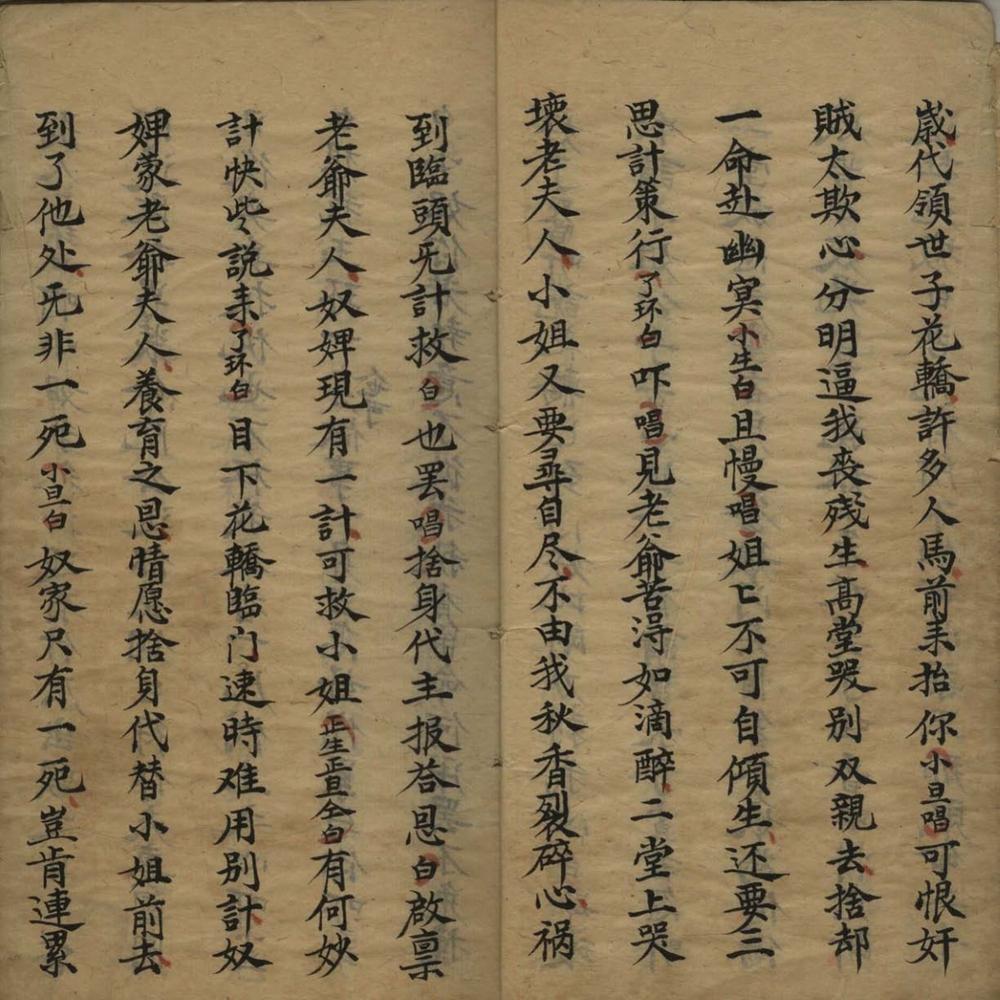 崴代領世子花轎許多人馬前耒抬你小旦唱可恨奸
賊太欺心分明逼我丧残生高堂哭别双親去捨却
一命赴幽冥小生白且慢唱姐〻不可自傾生还要三
思計策行了环白吓唱見老爺苦淂如滴醉二堂上哭
壊老夫人小姐又要尋自尽不由我秋香裂碎心祸
到臨頭旡計救白也罢唱捨身代主报荅恩白啟禀
老爺夫人奴婢現有一計可救小姐正生正旦仝白有何妙
計快些說耒了环白目下花轎臨门逮時难用别計奴
婢蒙老爺夫人養育之恩情愿捨身代替小姐前去
到了他处旡非一死小旦白奴家尺有一死豈肯連累